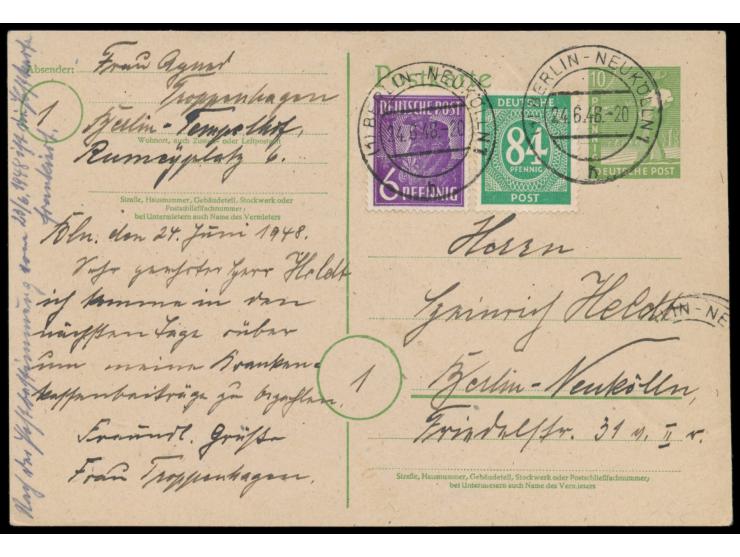 Absender:
Frau Agnes
Troppenhagen
Berlin-Tempelhof,
Wohnort, auch Zustell- oder Leitpostamt
Rumeyplatz 6.
Straße, Hausnummer, Gebäudeteil, Stockwerk oder
Postschließfachnummer;
bei Untermietern auch Name des Vermieters
1
Bln. den 24. Juni 1948.
Sehr geehrter Herr Heldt
ich komme in den
nächsten Tage rüber
um meine Kranken-
kassenbeiträge zu bezahlen.
Freundl. Grüße
Frau Troppenhagen.
Nach der Postbestimmung vom 20/6.1948 ist die Postkarte
Postkarte
(1) BERLIN-NEUKÖLLN 1
24.6.48.-20
b
BERLIN-NEUKÖLLN 1
24.6.48.-20
b
DEUTSCHE POST
6 PFENNIG
DEUTSCHE
84
PFENNIG
POST
10
PFENNIG
DEUTSCHE POST
Herrn
Heinrich Heldt
LIN-NE
1
Berlin-Neukölln,
Friedelstr. 31 v. II r.
Straße, Hausnummer, Gebäudeteil, Stockwerk oder Postschließfachnummer;
bei Untermietern auch Name des Vermieters